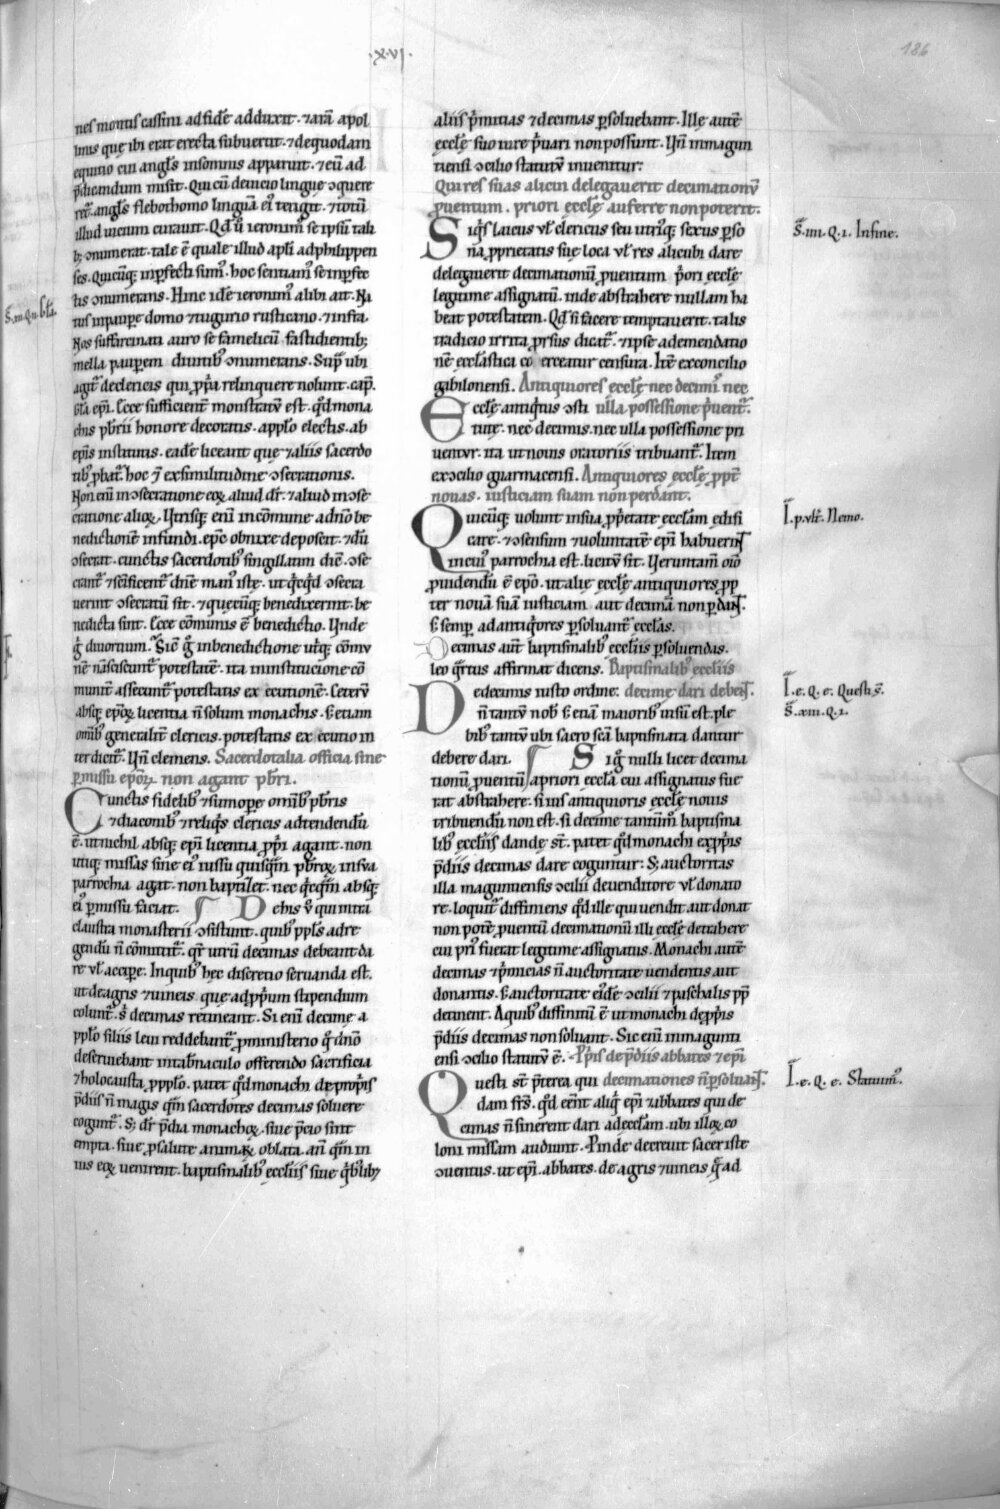 .x.vi.
186
nes montis cassini ad fidē adduxit. ⁊ arā apol
linis que ibi erat erecta subuertit. ⁊ de quodam
equitio cui angls̄ in somnis apparuit. ⁊ eū ad
p̄dicandum misit. Qui cū de uicio lingue ↄquere
ret᷒. angls̄ flebothomo linguā ei᷒ tetigit. ⁊ totū
illud uicium curauit. Qd̄ ū ieronim᷒ se ipsū tali
b; ↄnumerat. tale ē quale illud apl̄i ad philippen
ses. Quicūq; inp̄fecti sum᷒. hoc sentiam᷒ se inp̄fec
tis ↄnumerans. Hinc idē ieronim᷒ alibi ait. Na
tus in paupe domo ⁊ tugurio rusticano. ⁊ infra.
Nos suffarcinati auro se famelicū fastidientib;
mella pauperem diuitib᷒ ↄnumerans. Sup̄ ubi
agit᷒ de clericis qui p̄pa relinquere nolunt. cap̄.
ep̄i. Ecce sufficient᷒ monstratū est. qd̄ mona
chis pb̄rii honore decoratis. applo electis. ab
ep̄is institutis. eadē liceant que ⁊ aliis sacerdo
tib᷒ phat᷒. hoc ⁊ ex similitudine ↄsecrationis.
Non eni in ↄsecratione eoꝝ aliud dr̄. ⁊ aliud in ↄse
cratione alioꝝ. Utrisq; enī in cōmune a dn̄o be
nedictionē infundi. ep̄c obnixe deposcit. ⁊ dū
ↄsecrat. cunctis sacerdotib᷒ singillatim dic̄. ↄse
crant᷒ ⁊ sc̄ificent᷒ dn̄e man᷒ iste. ut qͥcqͥd ↄsecra
uerint ↄsecratū sit. ⁊ quecūq; benedixerint. be
nedicta sint. Ecce cōmunis ē benedictio. Unde
g᷒ diuortium. Sic̄ g᷒ in benedictione utͥq; cōmu
nē nāsciscunt᷒ potestatē. ita in institucione cō
munit᷒ assecunt᷒ potestatis ex ecutionē. Ceterū
absq; ep̄oꝝ licentia n̄ solum monachis. s; etiam
omīb᷒ generalit᷒ clericis. potestatis ex ecutio in
terdicit᷒. Uñ clemens. Sacerdotalia officia sine
p̄missu ep̄oꝝ non agant pb̄ri.
Cunctis fidelib᷒ ⁊ sumope omīb᷒ pb̄ris
⁊ diaconib᷒ ⁊ reliqͥs clericis adtendendū
ē. ut nichil absq; ep̄i licentia p̄pi agant. non
utiq; missas sine ei᷒ iussu quisqͣm pb̄roꝝ in sua
parrochia agat. non baptizet. nec qͥcqͣm absq;
ei᷒ p̄missu faciat. De his ū qui intra
claustra monasterii ↄsistunt. quib᷒ ppl̄s adre
gendū n̄ cōmittit᷒. qr̄ utrū decimas debeant da
re ul̄ accipe. In quib᷒ hec discretio seruanda est.
ut de agris ⁊ uineis. que ad p̄pum stipendium
colunt᷒. s᷒ decimas retineant. Si enī decime a
pplo filiis leui reddebant᷒ p̄ ministerio qͦ dn̄o
deseruiebant in tab̄naculo offerendo sacrificia
⁊ holocausta p̄ pplo. patet qd̄ monachi de propͥis
p̄diis n̄ magis qͣm sacerdotes decimas soluere
cogunt᷒. S; dr̄ p̄dia monachoꝝ. siue p̄cio sint
empta. siue p̄ salute animaꝝ oblata. an̄ qͣm in
ius eoꝝ uenirent. baptismalib᷒ ecc̄liis siue qͥb᷒lib;
aliis p̄mitias ⁊ decimas p̄soluebant. Ille autē
eccl̄e suo iure p̄uari non possunt. Uñ in magun
tiensi ↄcilio statutū inuenitur.
Qui res suas alicui delegauerit decimationū
puentum. priori eccl̄e auferre non poterit.
Siqͥs laicus ul̄ clericus seu utriusq; sexus p̄so
na p̄prietatis sue loca ul̄ res alicubi dare
delegauerit decimationū puentum p̄ori eccl̄e
legitime assignatū. inde abstrahere nullam ha
beat potestatem. Qd̄ si facere temptauerit. talis
tradicio irrita p̄rsus ducat᷒. ⁊ ipse ad emendatio
nē eccl̄astica co erceatur censura. Itē ex concilio
gabilonensi. Antiquiores eccl̄e nec decimis nec
Ecclē antiqͥtus ↄsti ulla possessione p̄uent᷒.
tute. nec decimis. nec ulla possessione pri
uentur. ita ut nouis oratoriis tribuant᷒. Item
ex ↄcilio guarmacensi. Antiquiores eccl̄e ppt̄
nouas. iusticiam suam non perdant.
Quicūq; uolunt in sua p̄p̄etate eccl̄am edifi
care. ⁊ ↄsensum ⁊ uoluntatē ep̄i habuerit̄
in cui᷒ parrochia est. licentū sit. Ueruntam̄ oīo
puidendū ē ep̄o. ut alie eccl̄e antiquiores pp
ter nouā suā iusticiam aut decimā non p̄dant.
s; semp ad antiqͥores p̄soluant᷒ eccl̄as.
Decimas aut̄ baptismalib᷒ ecc̄liis p̄soluendas.
leo qͣrtus affirmat dicens. Baptismalib᷒ ecc̄liis
De decimis iusto ordine. decime dari debent.
n̄ tantū nob᷒ s; etiā maioribus uisū est. ple
bib᷒ tantū ubi sacro sc̄a baptismata dantur
debere dari. Siqͥ nulli licet decima
tionū puentū a priori eccl̄a cui assignatus fue
rat abstrahere. si ius antiquioris eccl̄e nouis
tribuendū non est. si decime tantum baptisma
lib᷒ ecc̄liis dande st̄. patet qd̄ monachi ex p̄piis
p̄diis decimas dare coguntur. S; auctoritas
illa maguntiensis ↄcilii de uenditore ul̄ donato
re. loquit᷒ diffiniens qd̄ ille qui uendit aut donat
non potē puentū decimationū illi eccl̄e detrahere
cui pri᷒ fuerat legitime assignatus. Monachi autē
decimas ⁊ p̄micias n̄ auctoritate uendentis aut
donantis. s; auctoritate eidē ↄcilii ⁊ paschalis pp̄
detinent. A quib᷒ diffinitū ē ut monachi de p̄pis
p̄diis decimas non soluant. Sic enī in magunti
ensi ↄcilio statutū ē. P̄pis de p̄diis abbates ⁊ ep̄i
Questi st̄ p̄terea qui decimationes n̄ p̄soluant.
dam frs̄. qd̄ eēnt aliqͥ ep̄i ⁊ abbates qui de
cimas n̄ sinerent dari ad eccl̄am. ubi illoꝝ co
loni missam audiunt. Pinde decreuit sacer iste
ↄuentus. ut ep̄i. abbates. de agris ⁊ uineis qͣ ad
S̄. iii. Q. i. Infine.
I. p. ult̄. Nemo.
I. e. Q. e. Questi s̄.
S̄. xiii. Q. i.
I. e. Q. e. Statuim᷒.